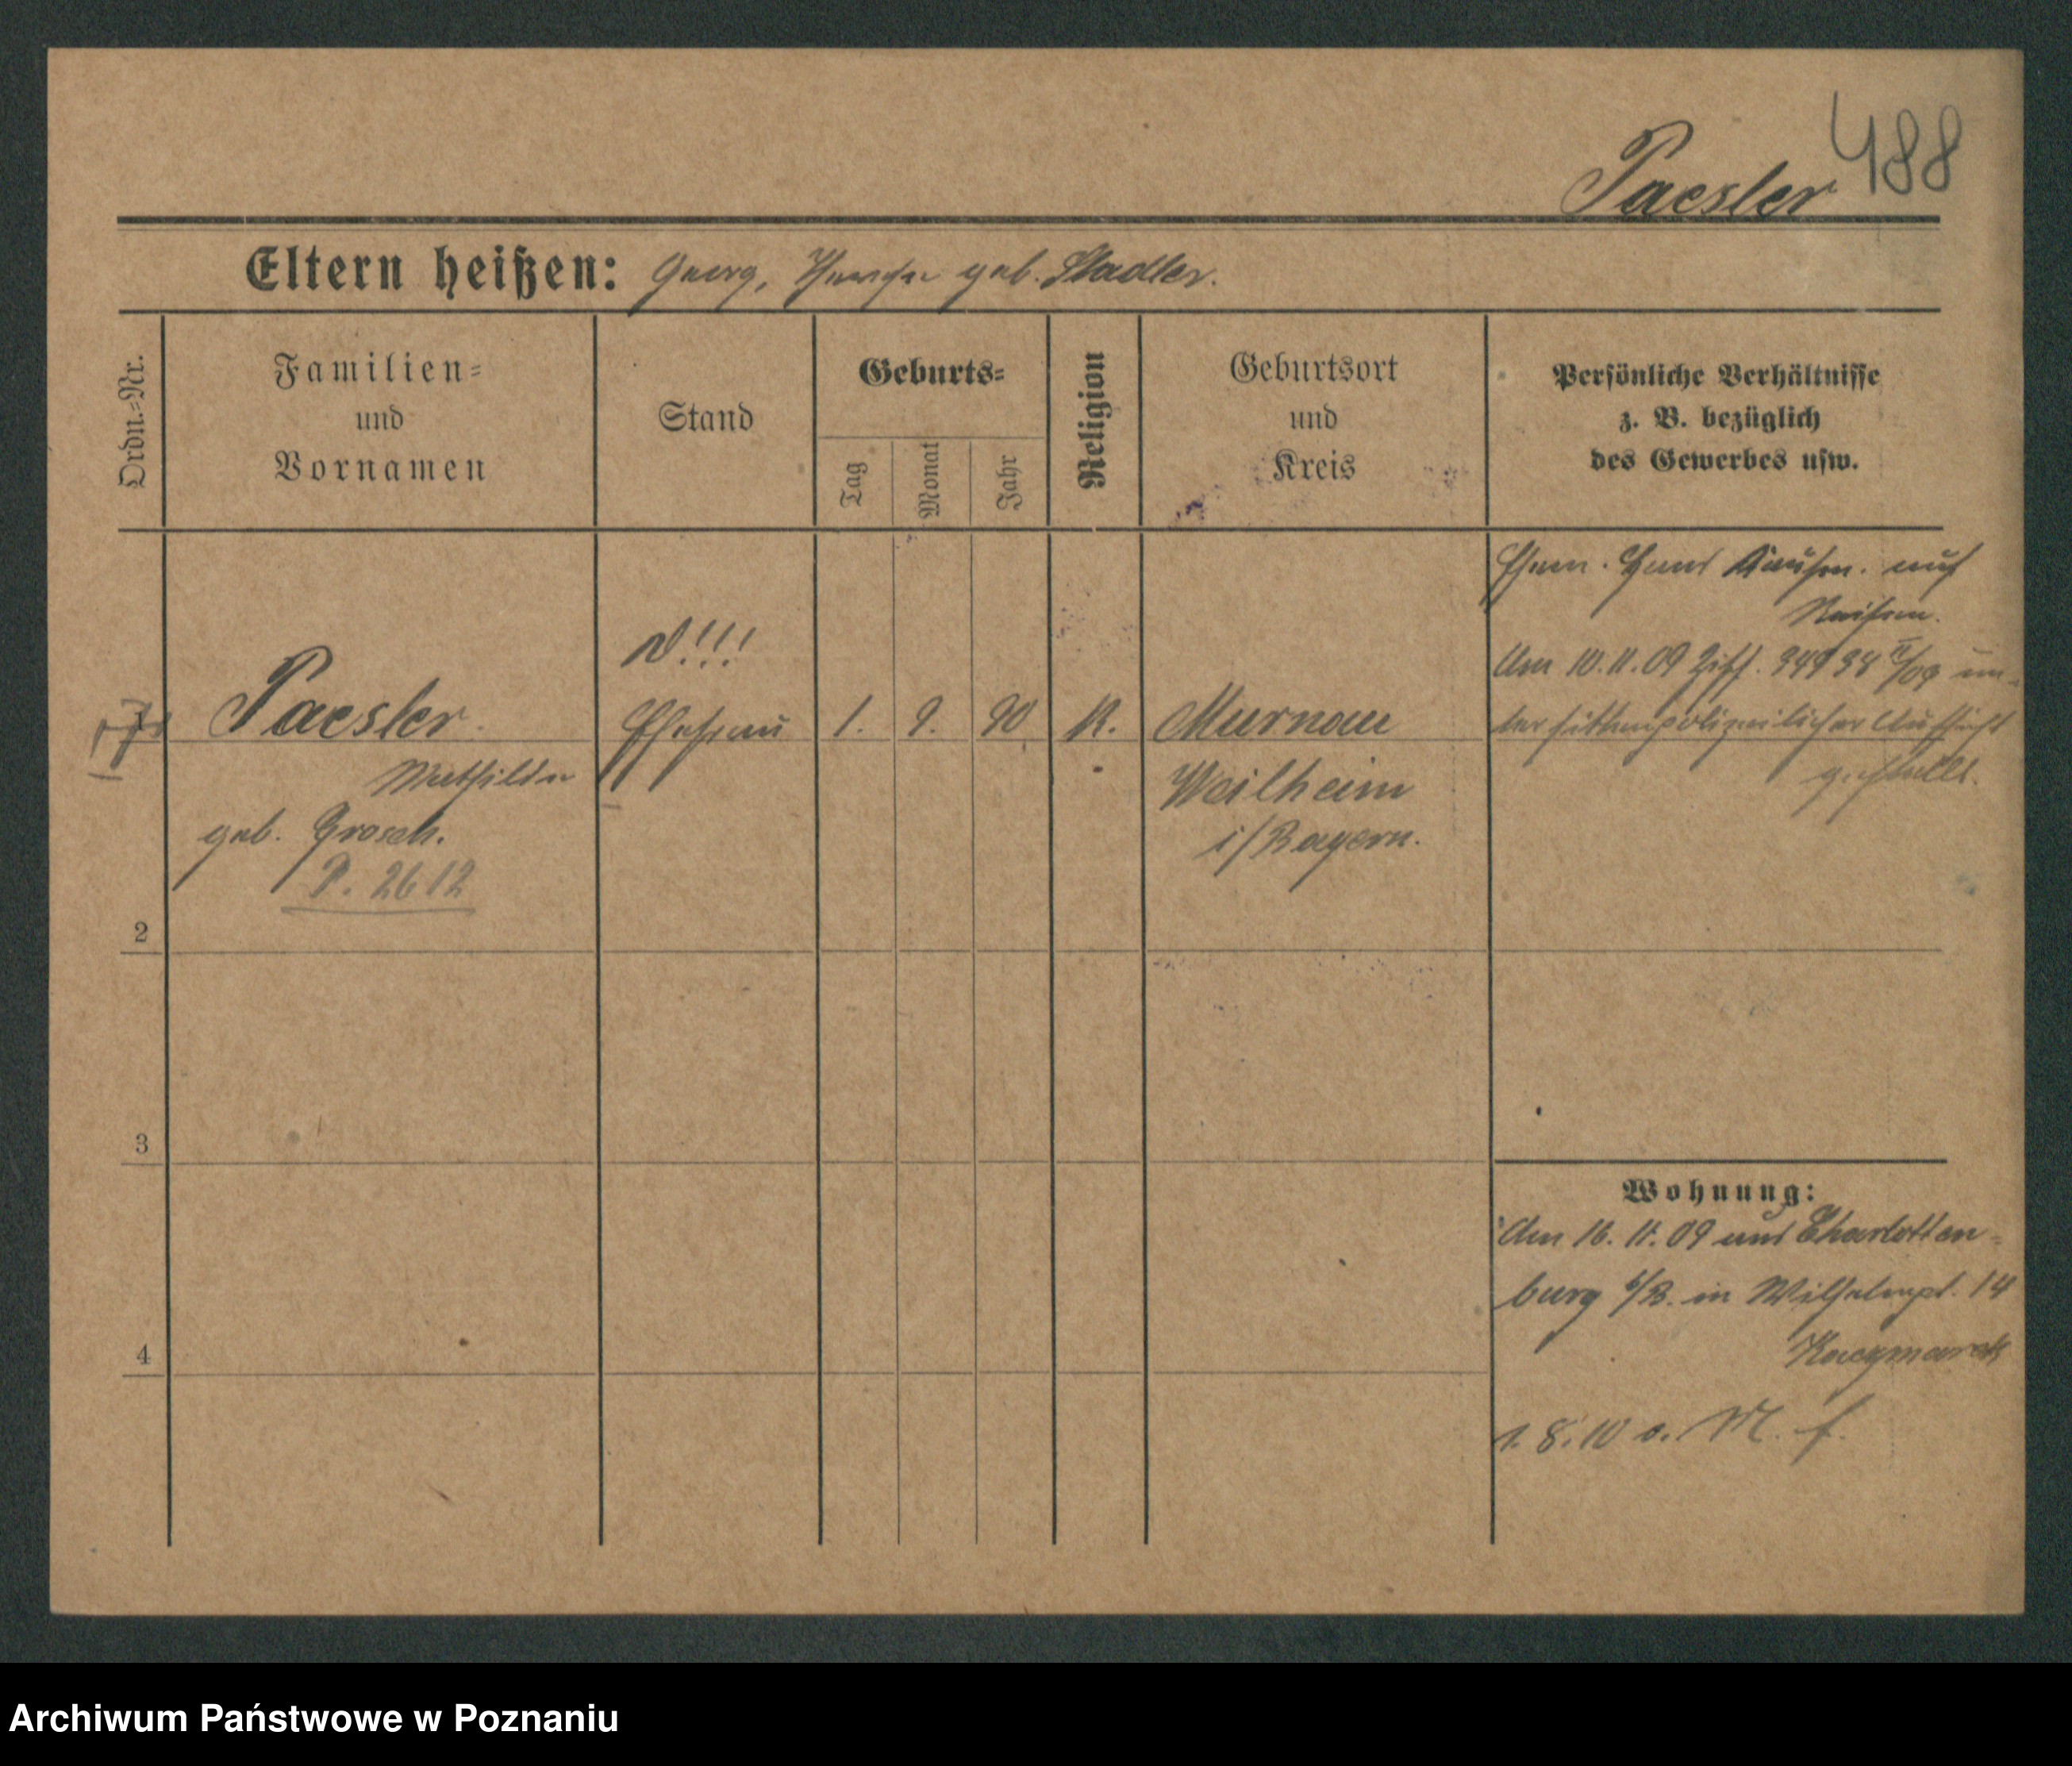 488
Paesler
Eltern heißen: Georg, Therese geb. Stadler.
Ordn.-Nr.
Familien-
und
Vornamen
Stand
Geburts-
Tag
Monat
Jahr
Religion
Geburtsort
und
Kreis
Persönliche Verhältnisse
z. B. bezüglich
des Gewerbes usw.
Ehem. Hans Kaufm. auf
Reisen.
Am 10.11.09 Ziff. 34934 II/09 un-
ter sittenpolizeilicher Aufsicht
gestellt.
N!!!
1
Paesler
Ehefrau
1.
9.
90
K.
Murnau
Mathilde
Weilheim
geb. Grosch.
i/Bayern.
P. 2612
2
3
4
Wohnung:
Am 16.11.09 aus Charlotten-
burg b/B. in Wilhelmpl. 14
Kaczmarek
1.8.10 o. M. f.
Archiwum Państwowe w Poznaniu